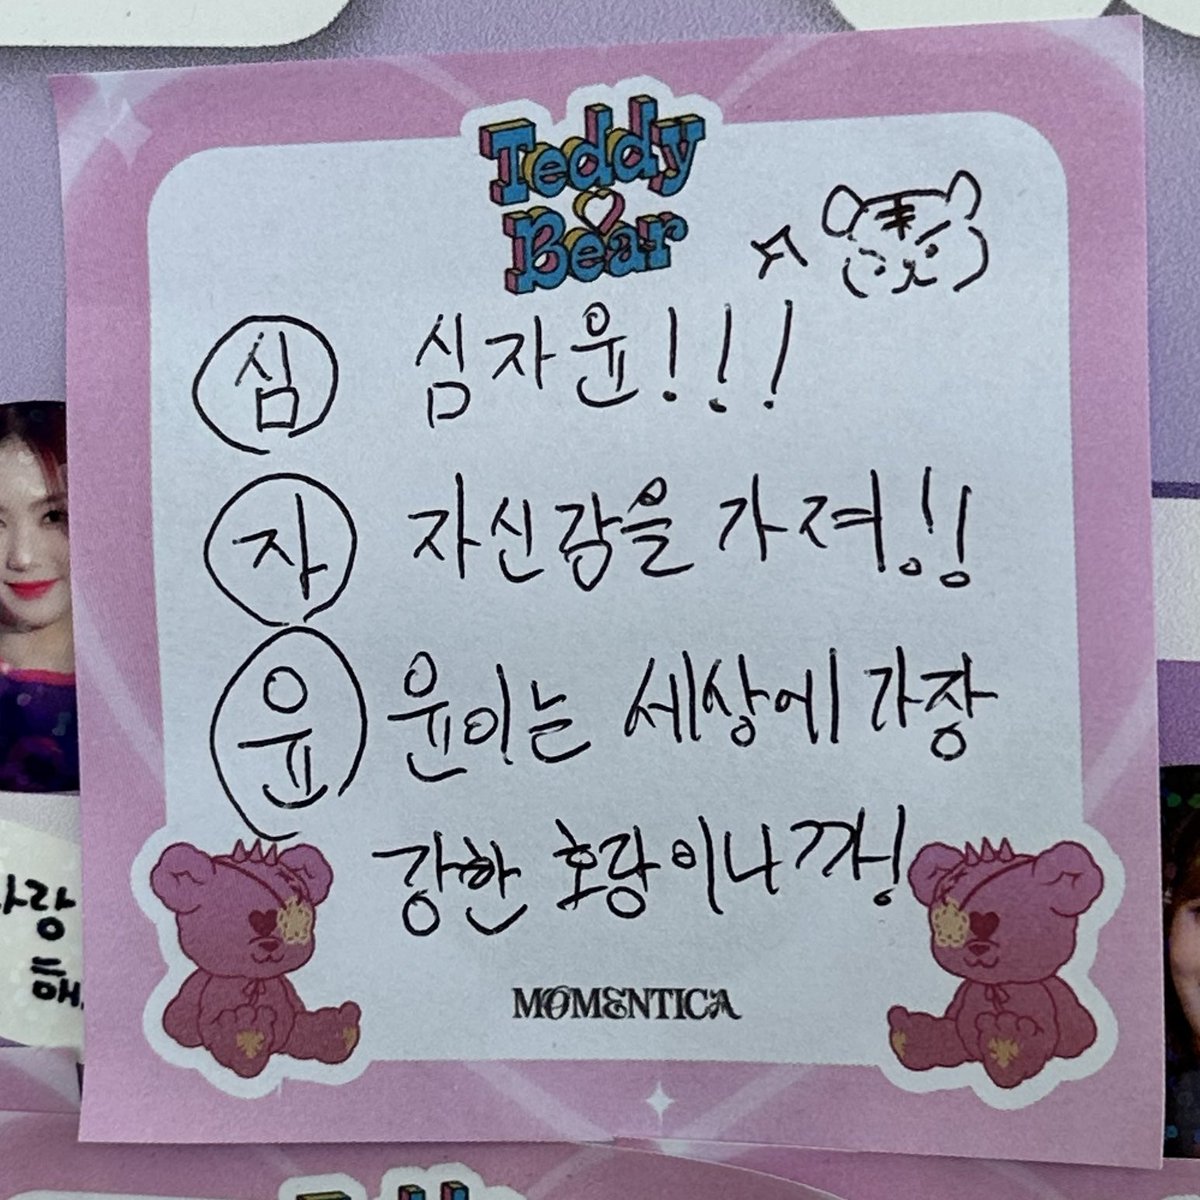 Teddy
Bear
심 심자윤!!!
자 자신감을 가져!!
윤 윤이는 세상에 가장
강한 호랑이니까!
MOMENTICA
사랑
해